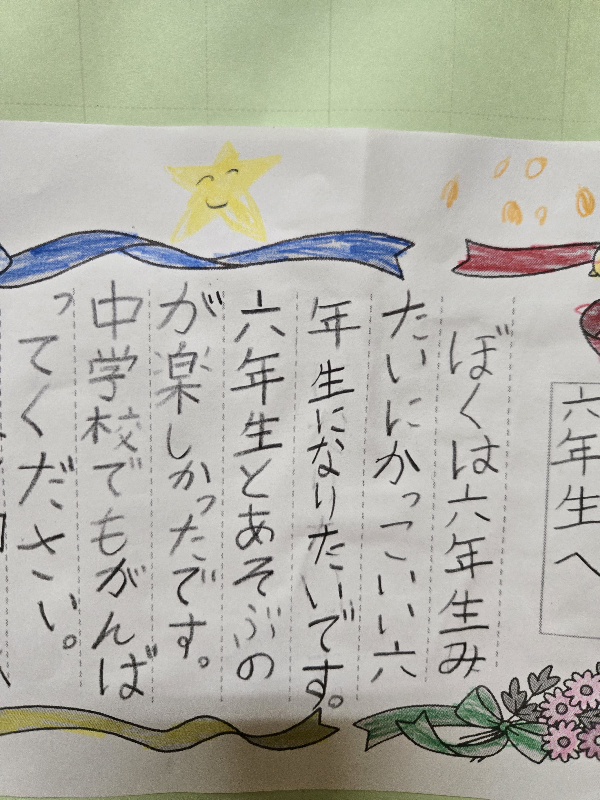 六年生へ
ぼくは六年生み
たいにかっこいい六
年生になりたいです。
六年生とあそぶの
が楽しかったです。
中学校でもがんば
ってください。